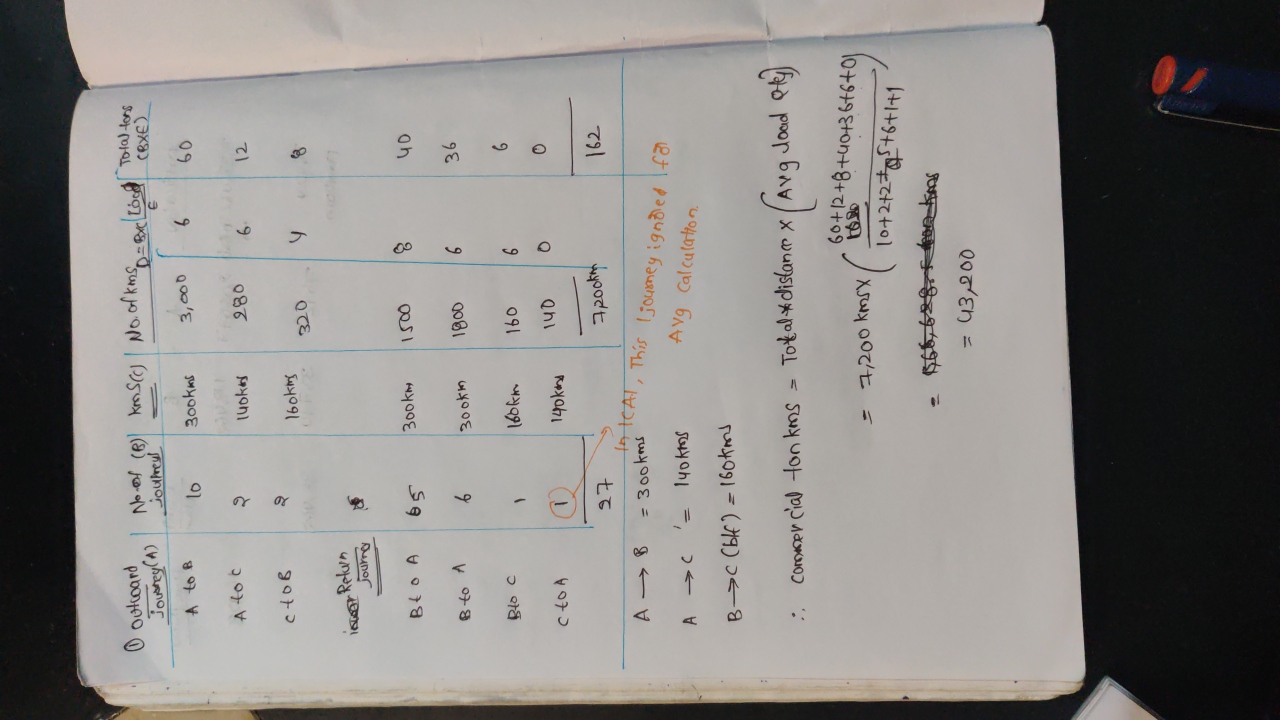 ① Outboard journey(A) No. of (B) journey kms(C) No. of kms D = BXC Load E Total tons (BXE)
A to B 10 300kms 3,000 6 60
A to C 2 140kms 280 6 12
C to B 2 160kms 320 4 8
Return journey
B to A 5 300km 1500 8 40
B to A 6 300km 1800 6 36
B to C 1 160km 160 6 6
C to A 1 140kms 140 0 0
27 7,200km 162
In ICAI, This 1 journey ignored for
Avg calculation.
A → B = 300kms
A → C = 140kms
B → C (b/f) = 160kms
∴ commercial ton kms = Total distance X (Avg load qty)
= 7,200 kms X (60+12+8+40+36+6+0)
10+2+2+5+6+1+1
= 43,200